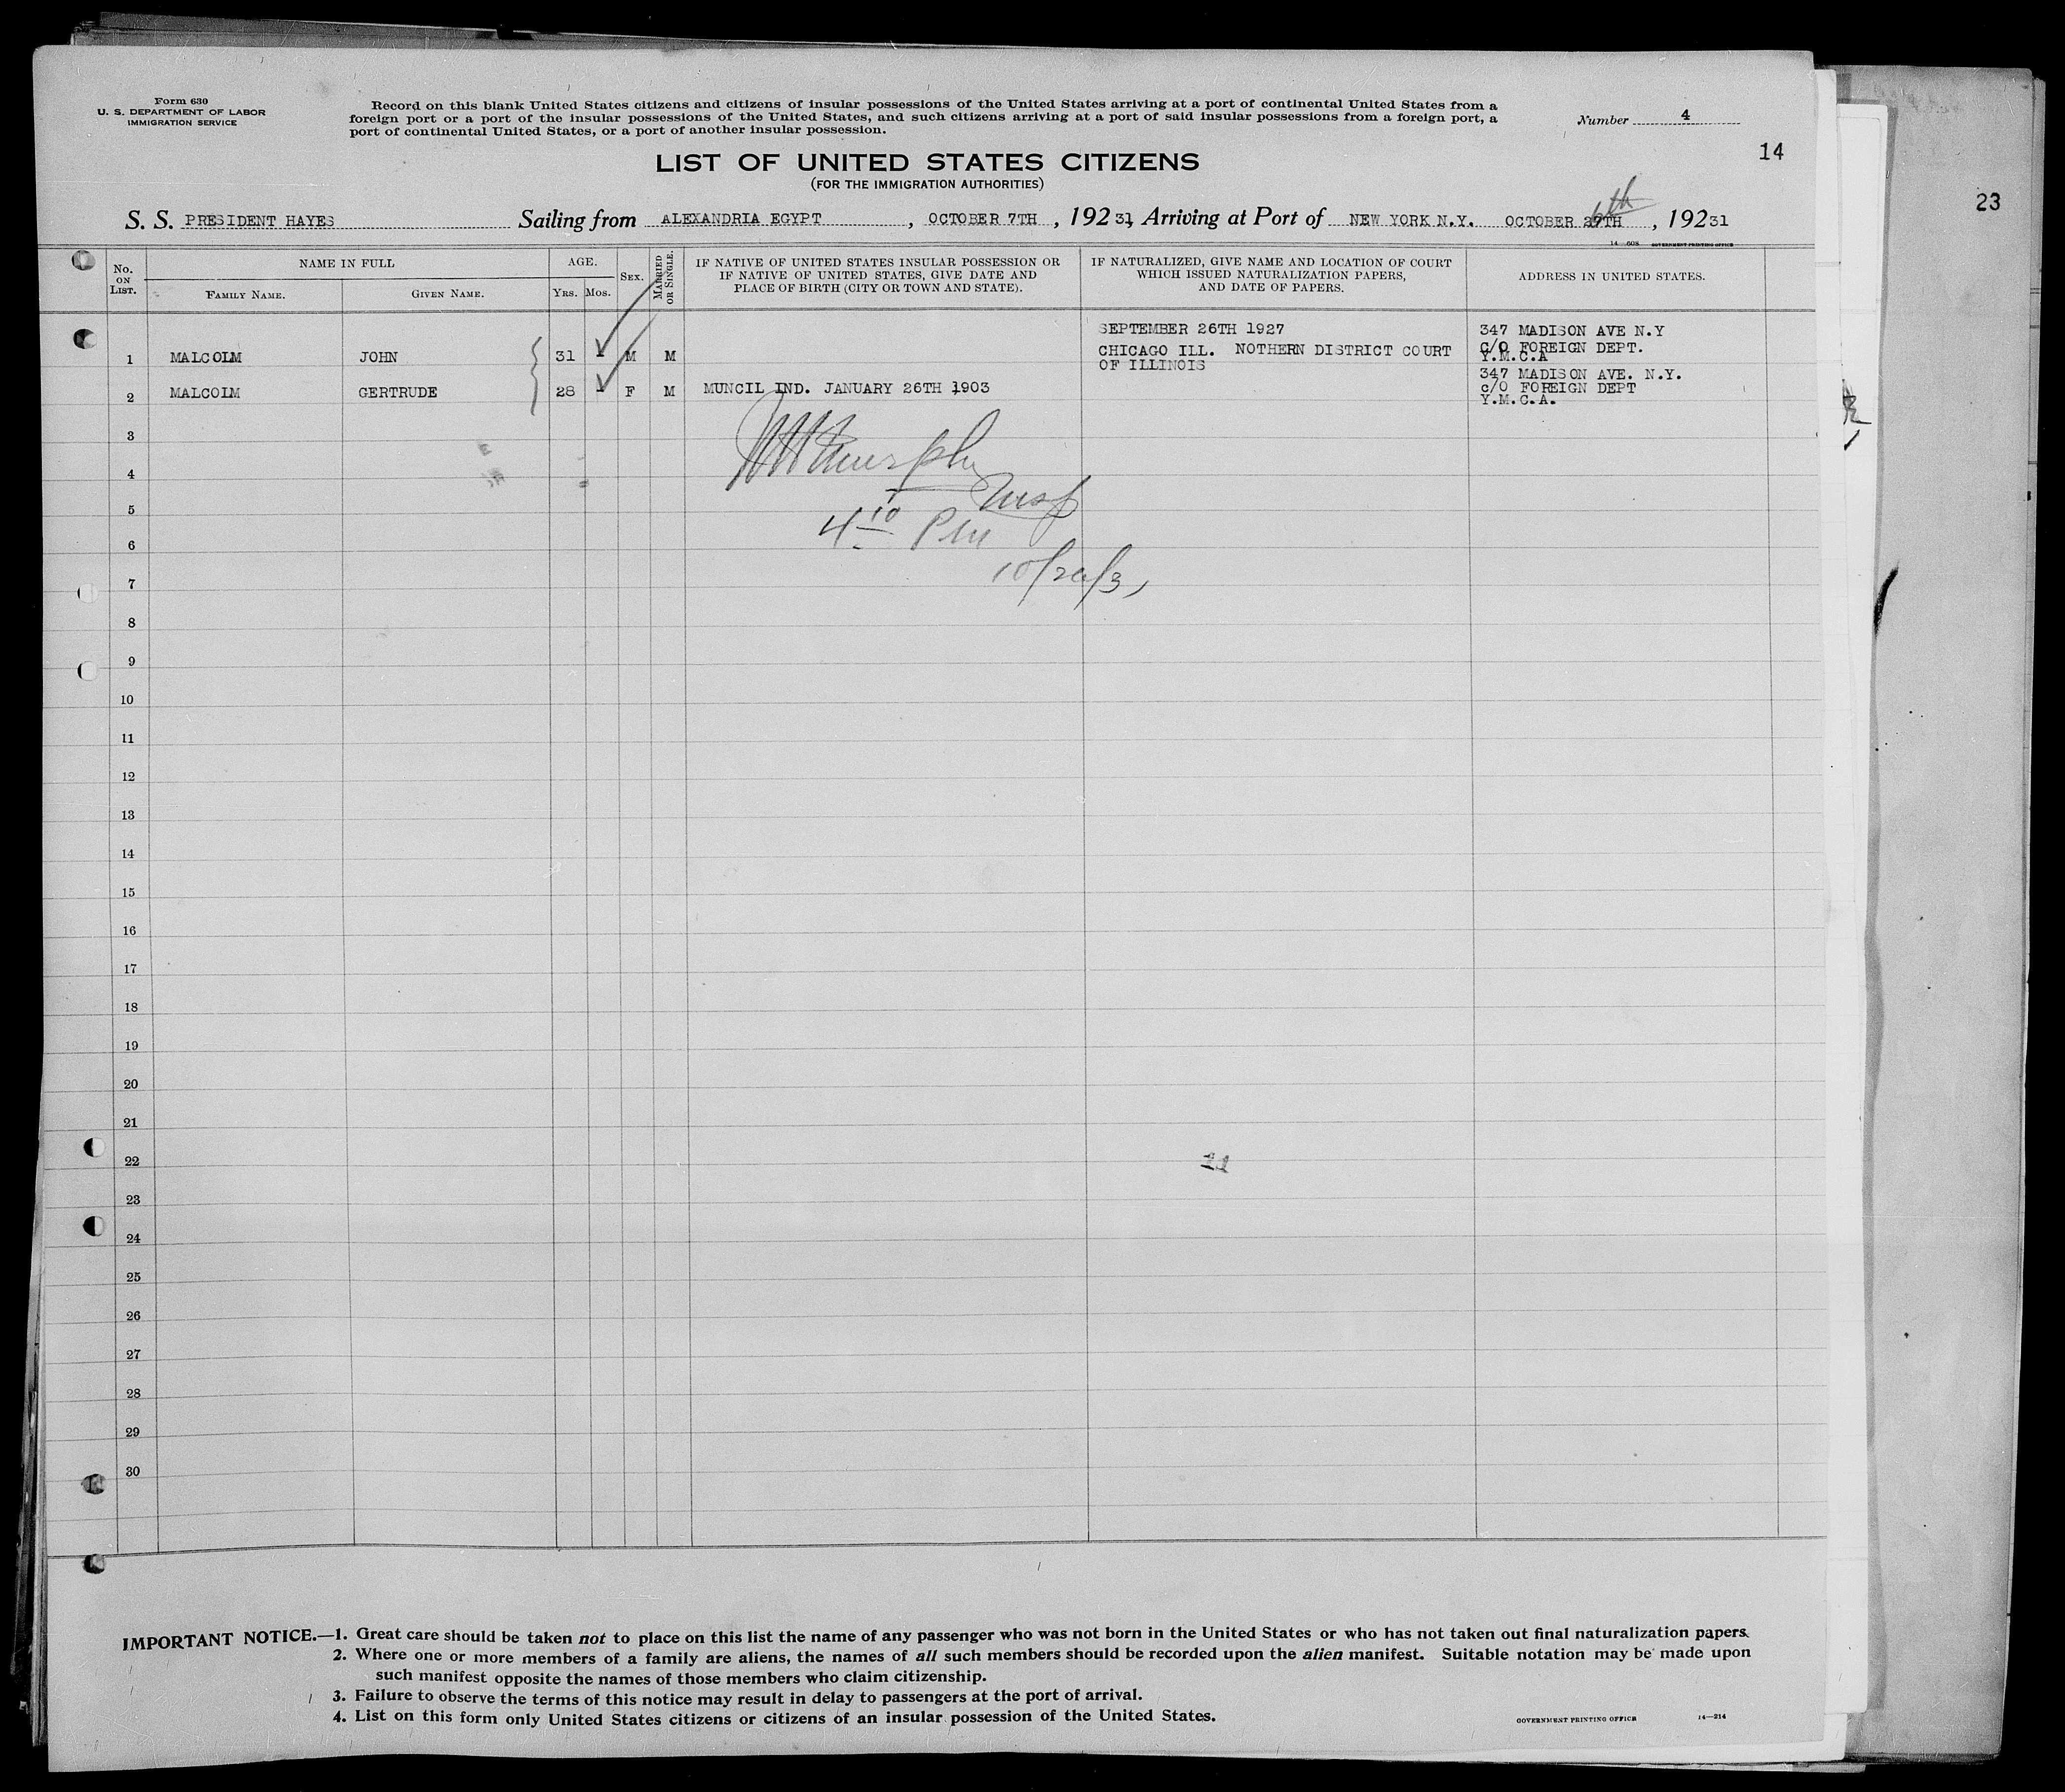 Form 630
U. S. DEPARTMENT OF LABOR
IMMIGRATION SERVICE
Record on this blank United States citizens and citizens of insular possessions of the United States arriving at a port of continental United States from a
foreign port or a port of the insular possessions of the United States, and such citizens arriving at a port of said insular possessions from a foreign port, a
port of continental United States, or a port of another insular possession.
Number 4
14
23
LIST OF UNITED STATES CITIZENS
(FOR THE IMMIGRATION AUTHORITIES)
S. S. PRESIDENT HAYES Sailing from ALEXANDRIA EGYPT, OCTOBER 7TH, 192 31, Arriving at Port of NEW YORK N.Y. OCTOBER 27TH 6th, 192 31
14—608 GOVERNMENT PRINTING OFFICE
No. ON LIST.
NAME IN FULL
FAMILY NAME.
GIVEN NAME.
AGE.
YRS. MOS.
SEX.
MARRIED OR SINGLE.
IF NATIVE OF UNITED STATES INSULAR POSSESSION OR
IF NATIVE OF UNITED STATES, GIVE DATE AND
PLACE OF BIRTH (CITY OR TOWN AND STATE).
IF NATURALIZED, GIVE NAME AND LOCATION OF COURT
WHICH ISSUED NATURALIZATION PAPERS,
AND DATE OF PAPERS.
ADDRESS IN UNITED STATES.
1 MALCOLM JOHN 31 - M M
SEPTEMBER 26TH 1927
CHICAGO ILL. NOTHERN DISTRICT COURT
OF ILLINOIS
347 MADISON AVE N.Y
C/O FOREIGN DEPT.
Y.M.C.A
2 MALCOLM GERTRUDE 28 - F M MUNCIL IND. JANUARY 26TH 1903
347 MADISON AVE. N.Y.
c/O FOREIGN DEPT
Y.M.C.A.
3
Murphy
4
Insp
5
4 10 PM
6
10/26/31
7
8
9
10
11
12
13
14
15
16
17
18
19
20
21
22
11
23
24
25
26
27
28
29
30
IMPORTANT NOTICE.—1. Great care should be taken not to place on this list the name of any passenger who was not born in the United States or who has not taken out final naturalization papers.
2. Where one or more members of a family are aliens, the names of all such members should be recorded upon the alien manifest. Suitable notation may be made upon
such manifest opposite the names of those members who claim citizenship.
3. Failure to observe the terms of this notice may result in delay to passengers at the port of arrival.
4. List on this form only United States citizens or citizens of an insular possession of the United States.
GOVERNMENT PRINTING OFFICE 14—214